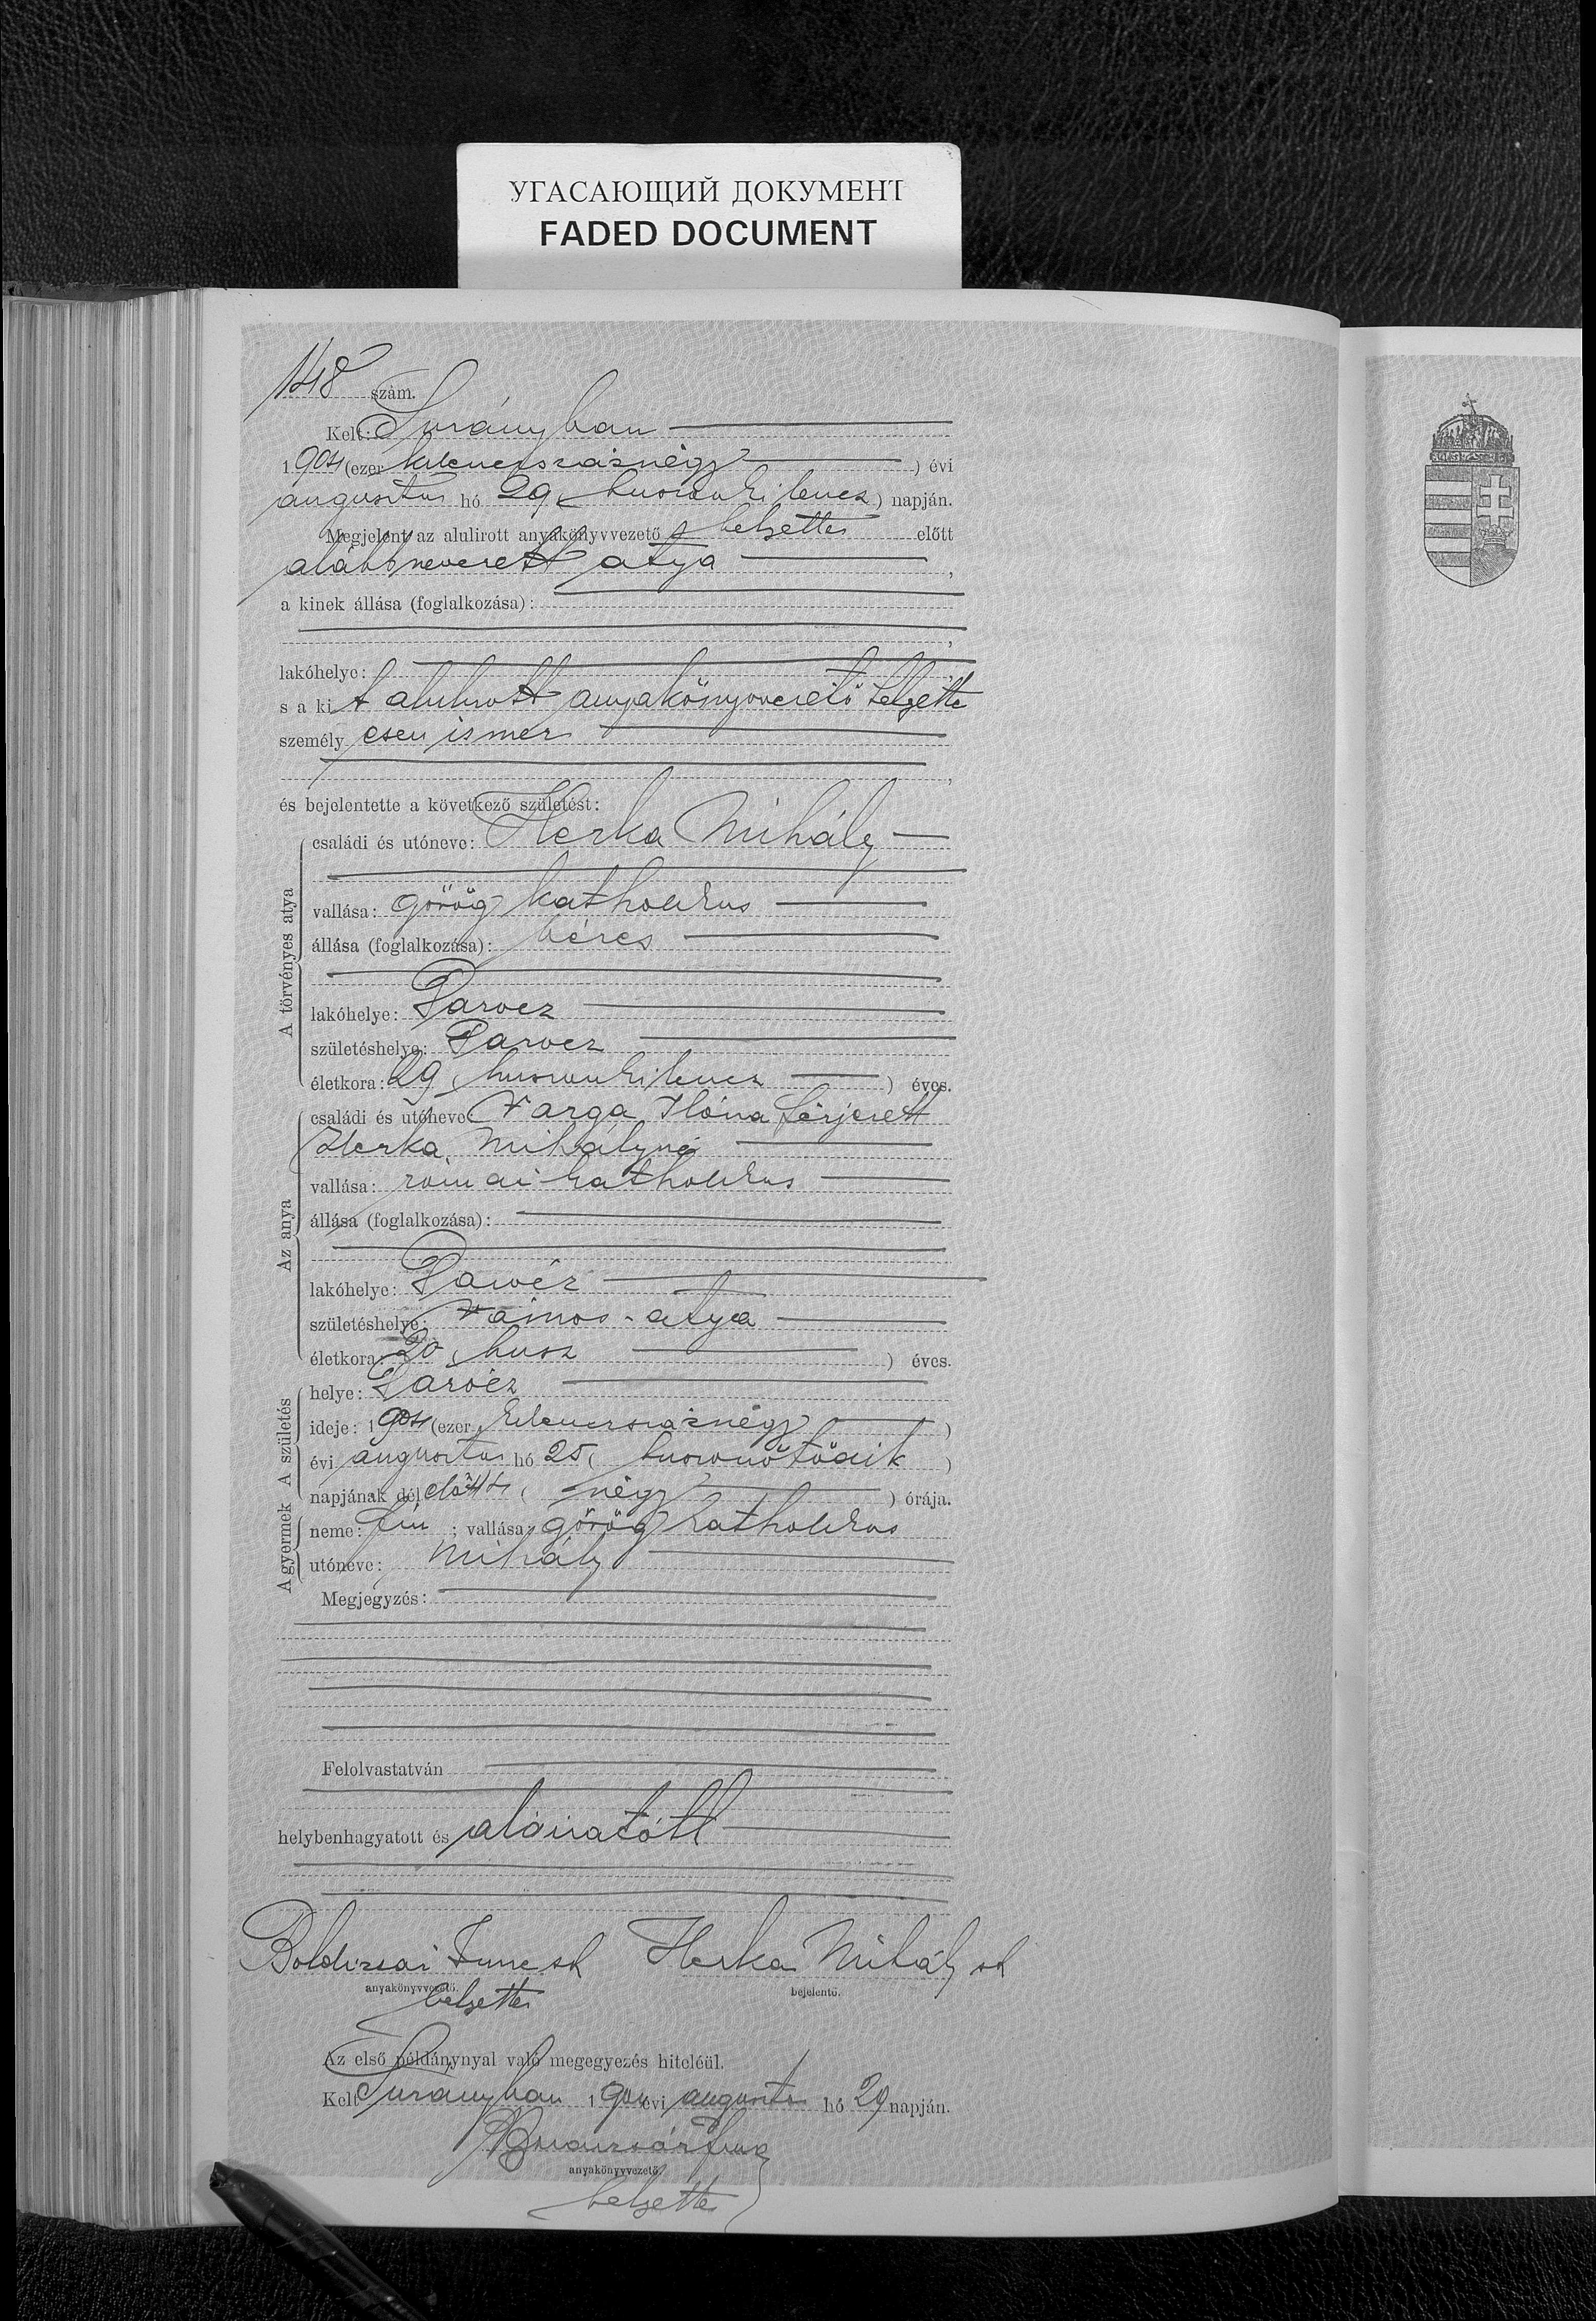 УГАСАЮЩИЙ ДОКУМЕНТ
FADED DOCUMENT
148 szám.
Kelt: Surányban
1904 (ezer kilencszáznégy) évi
augusztus hó 29 (huszonkilencz) napján.
Megjelent az alulirott anyakönyvvezető helyettes előtt
alábbnevezett atya,
a kinek állása (foglalkozása):
,
lakóhelye: ,
s a kit alulirott anyakönyvvezető helyette
személyesen ismer
,
és bejelentette a következő születést:
A törvényes atya
családi és utóneve: Herka Mihály
vallása: görög katholikus
állása (foglalkozása): béres
lakóhelye: Darócz
születéshelye: Darócz
életkora: 29 (huszonkilencz) éves.
Az anya
családi és utóneve: Varga Ilona férjezett
Herka Mihályné
vallása: római katholikus
állása (foglalkozása):
lakóhelye: Darócz
születéshelye: Vámos-atya
életkora: 20 (husz) éves.
A születés
helye: Darócz
ideje: 1904 (ezer kilenczszáznégy)
évi augusztus hó 25 (huszonötödik)
napjának délelőtt 4 (négy) órája.
A gyermek
neme: fiu; vallása: görög katholikus
utóneve: Mihály
Megjegyzés:
Felolvastatván
helybenhagyatott és aláiratott
Imre sk Herka Mihály sk
anyakönyvvezető. bejelentő.
helyettes
Az első példánynyal való megegyezés hiteléül.
Kelt Surányban 1904 évi augusztus hó 29 napján.
anyakönyvvezető.
helyettes